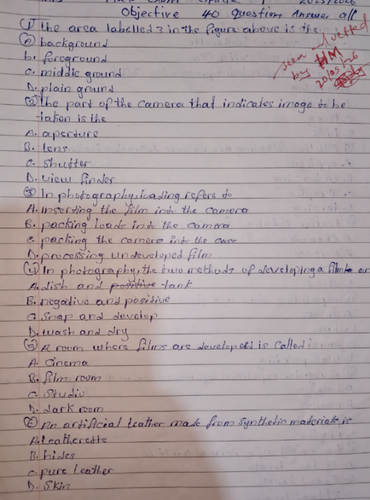 2025/2026
Objective 40 Question Answer all
(1) The area labelled 3 in the figure above is the
(a) background
b. foreground
c. middle ground
D. plain ground
seen / vetted
by HM
(2) The part of the camera that indicates image to be
taken is the
A. aperture
B. lens
C. shutter
D. view finder
(3) In photography, loading refers to
A. Inserting the film into the camera
B. packing loads into the camera
C. packing the camera into the case
D. processing undeveloped film
(4) In photography, the two methods of developing a film are
A. dish and positive tank
B. negative and positive
C. snap and develop
D. wash and dry
(5) A room where films are developed is called:
A. Cinema
B. film room
C. Studio
D. dark room
(6) An artificial leather made from synthetic materials is
A. Leatherette
B. hides
C. pure leather
D. Skin